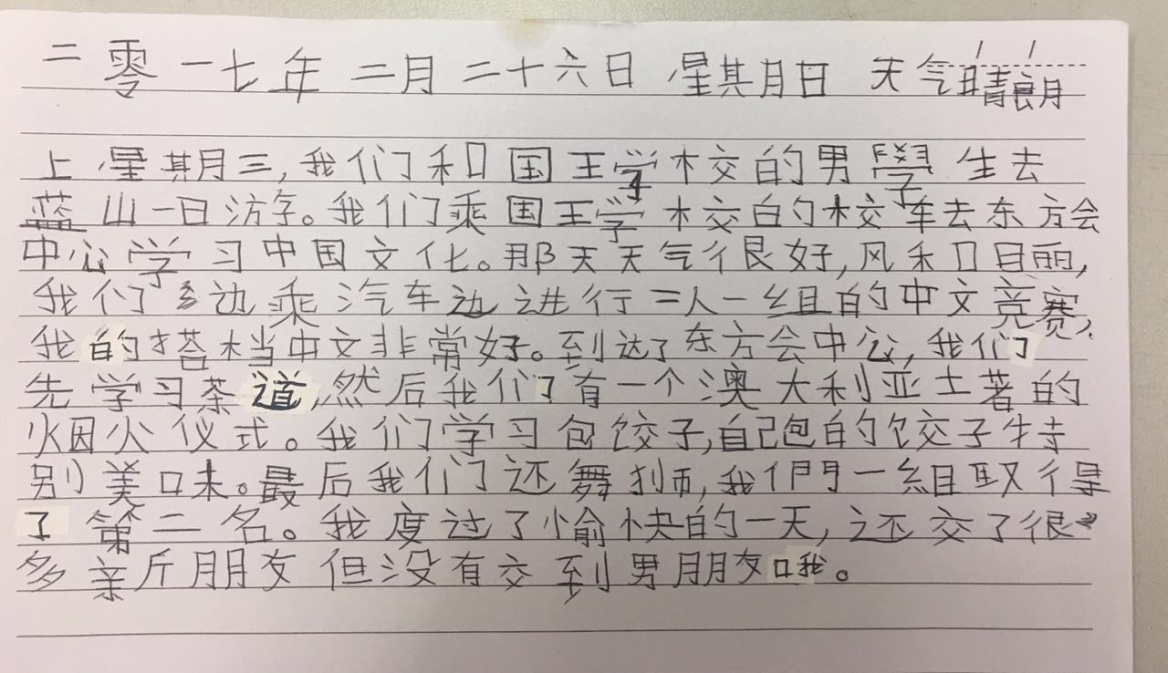 二零一七年 二月二十六日 星其月日 天气晴朗
上星期三,我们和国王学校的男學生去
蓝山一日游字。我们乘国王学校的校车去东方会
中心学习中国文化。那天天气很好,风和日丽,
我们边乘汽车边进行三人一组的中文竞赛,
我的搭档中文非常好。到达了东方会中心,我们
先学习茶道,然后我们有一个澳大利亚土著的
烟火仪式。我们学习包饺子,自己包的饺子特
别美味。最后我们还舞狮,我们們一組取得
了第二名。我度过了愉快的一天,还交了很
多新朋友但没有交到男朋友哦。